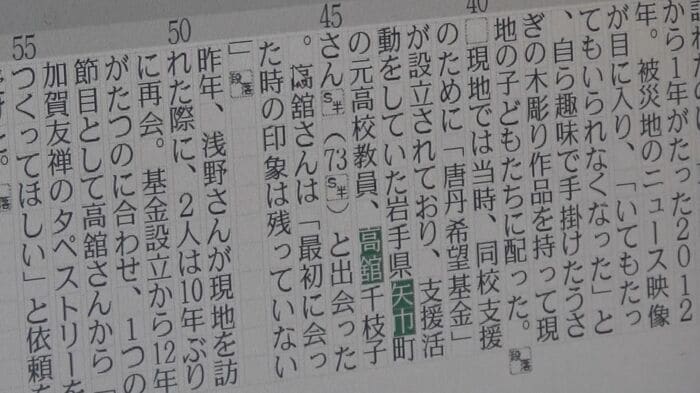 から1年がたった2012
年。被災地のニュース映像
が目に入り、「いてもたっ
てもいられなくなった」と
、自ら趣味で手掛けたうさ
ぎの木彫り作品を持って現
地の子どもたちに配った。段落
40
現地では当時、同校支援
のために「唐丹希望基金」
が設立されており、支援活
動をしていた岩手県矢巾町
の元高校教員、高舘千枝子
45
さんS半（73S半）と出会った
。高舘さんは「最初に会っ
た時の印象は残っていない
」段落
50
昨年、浅野さんが現地を訪
れた際に、2人は10年ぶり
に再会。基金設立から12年
がたつのに合わせ、1つの
節目として高舘さんから「
加賀友禅のタペストリーを
55
つくってほしい」と依頼を